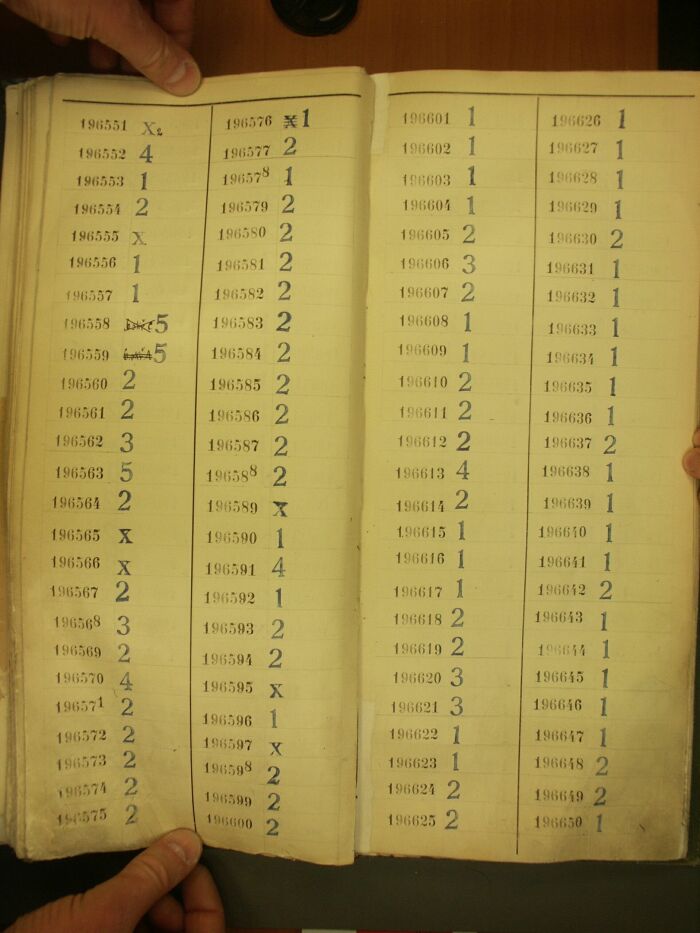 196551 X2
196552 4
196553 1
196554 2
196555 X
196556 1
196557 1
196558 5
196559 5
196560 2
196561 2
196562 3
196563 5
196564 2
196565 X
196566 X
196567 2
196568 3
196569 2
196570 4
196571 2
196572 2
196573 2
196574 2
196575 2
196576 X 1
196577 2
196578 1
196579 2
196580 2
196581 2
196582 2
196583 2
196584 2
196585 2
196586 2
196587 2
196588 2
196589 X
196590 1
196591 4
196592 1
196593 2
196594 2
196595 X
196596 1
196597 X
196598 2
196599 2
196600 2
196601 1
196602 1
196603 1
196604 1
196605 2
196606 3
196607 2
196608 1
196609 1
196610 2
196611 2
196612 2
196613 4
196614 2
196615 1
196616 1
196617 1
196618 2
196619 2
196620 3
196621 3
196622 1
196623 1
196624 2
196625 2
196626 1
196627 1
196628 1
196629 1
196630 2
196631 1
196632 1
196633 1
196634 1
196635 1
196636 1
196637 2
196638 1
196639 1
196640 1
196641 1
196642 2
196643 1
196644 1
196645 1
196646 1
196647 1
196648 2
196649 2
196650 1